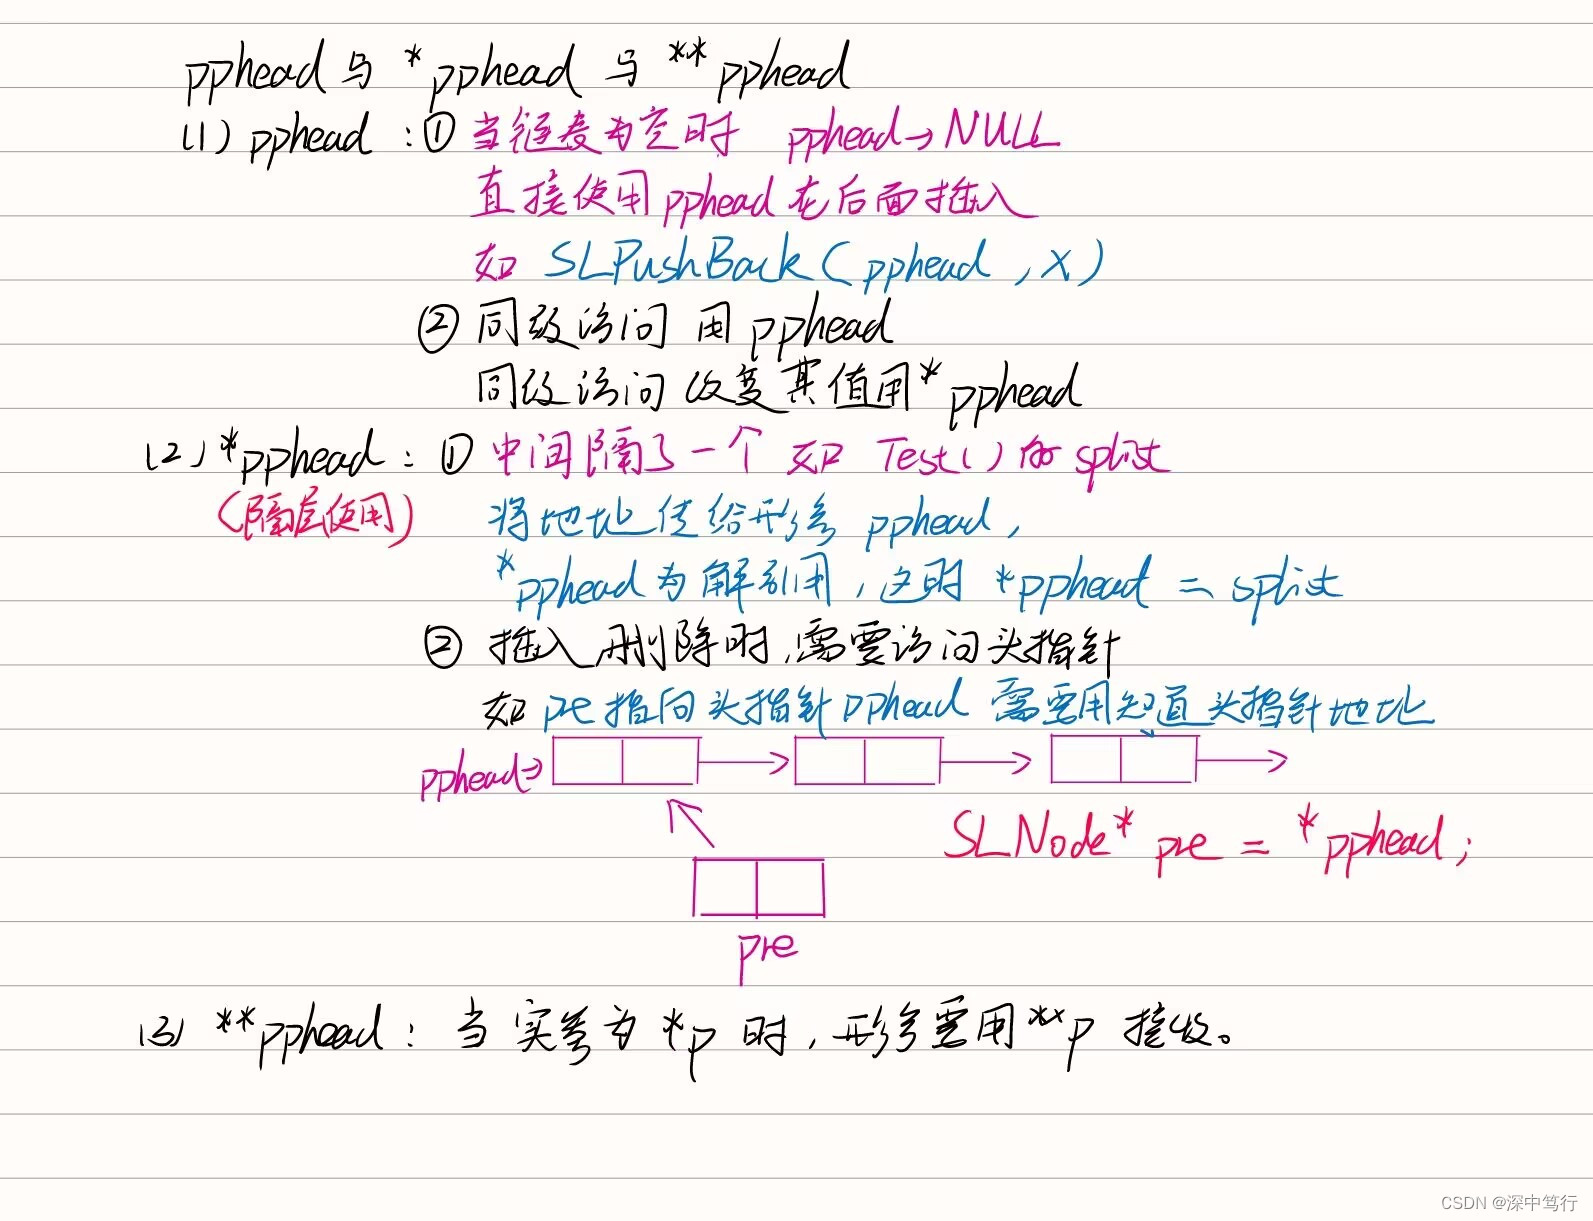 pphead与*pphead与**pphead
(1) pphead：① 当链表为空时 pphead→NULL
直接使用pphead在后面插入
如 SLPushBack(pphead,x)
② 同级访问 用pphead
同级访问 改变其值用*pphead
(2) *pphead：① 中间隔了一个 如 Test()的splist
(隔层使用) 将地址传给形参 pphead,
*pphead为解引用，这时 *pphead = splist
② 插入删除时,需要访问头指针
如 pre指向头指针pphead 需要用知道头指针地址
pphead→
SLNode* pre = *pphead;
pre
(3) **pphead：当实参为*p时，形参要用**p接收。
CSDN @深中笃行